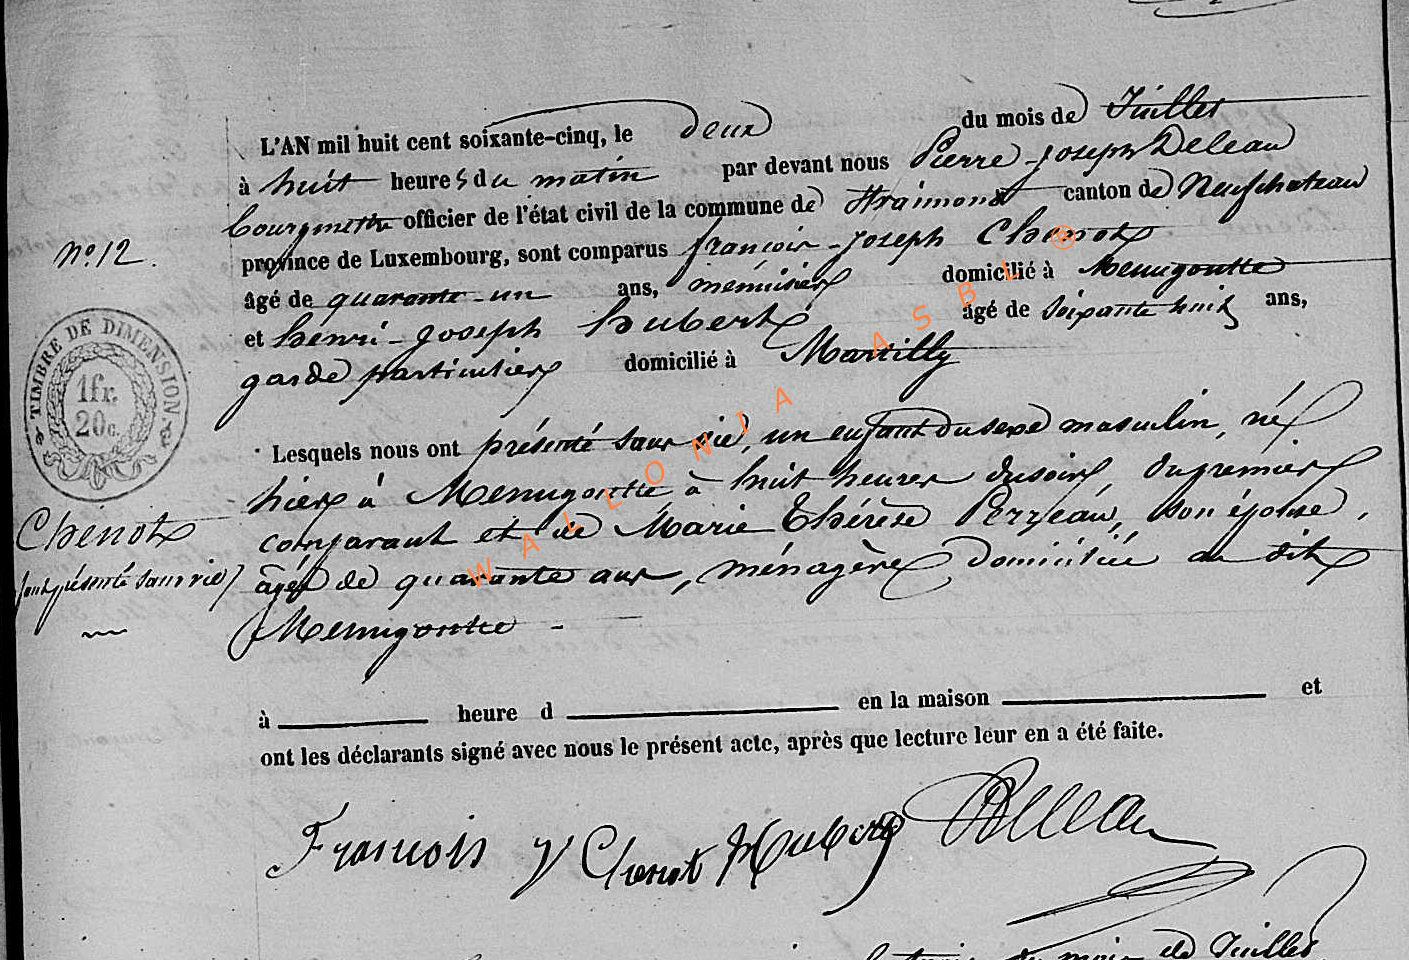 L'AN mil huit cent soixante-cinq, le deux du mois de Juillet
à huit heures du matin par devant nous Pierre-Joseph Deleau
bourgmestre officier de l'état civil de la commune de Straimont canton de Neufchateau
N°. 12.
province de Luxembourg, sont comparus françois-Joseph Chenot
âgé de quarante-un ans, menuisier domicilié à Menugoutte
et henri-Joseph hubert âgé de soixante huit ans,
garde particulier domicilié à Martilly
TIMBRE DE DIMENSION
1fr.
20c.
Lesquels nous ont présenté sans vie, un enfant du sexe masculin, né
hier à Menugoutte à huit heures du soir, du premier
Chenot
comparant et de Marie Thérèse Pierreau, son épouse,
(présenté sans vie)
âgée de quarante ans, ménagère, domiciliée au dit
Menugoutte -
à heure d en la maison et
ont les déclarants signé avec nous le présent acte, après que lecture leur en a été faite.
François J Chenot Hubert Deleau
du mois de Juillet
WALLONIA ASBL ®